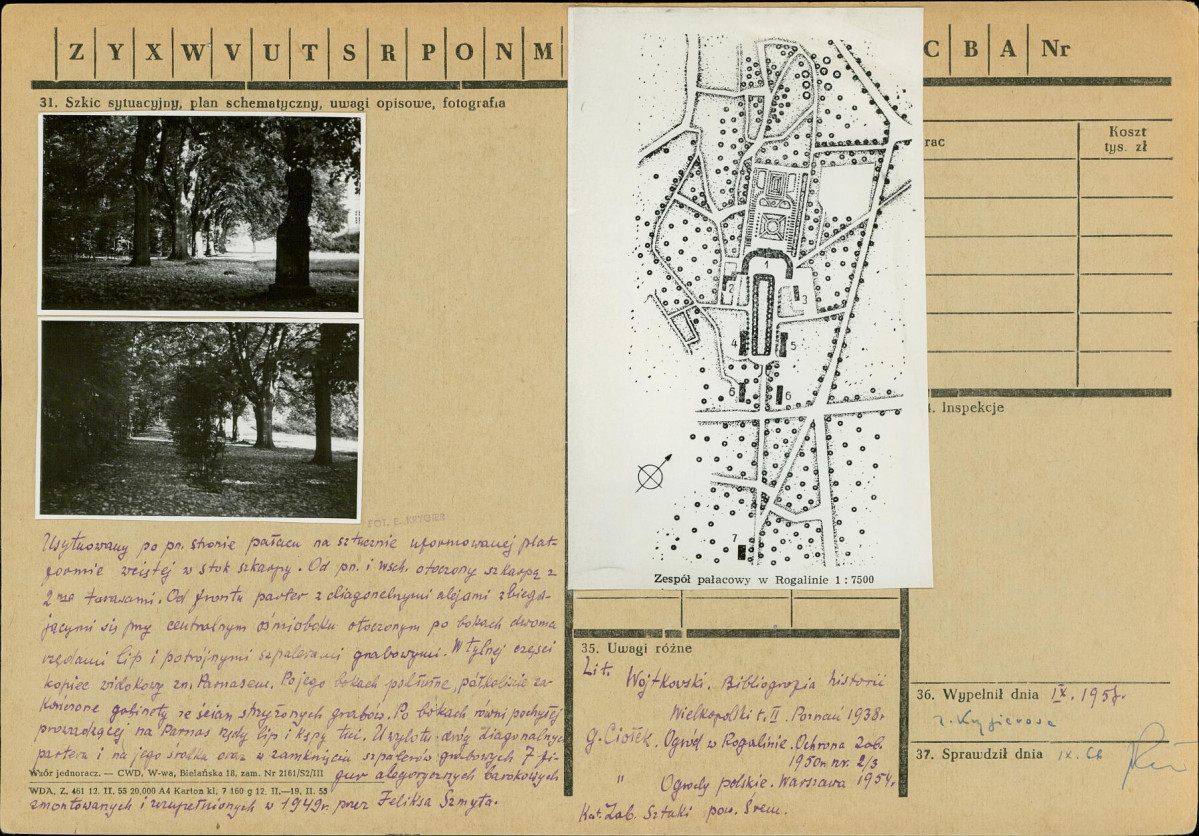 Z Y X W V U T S R P O N M
C B A Nr
31. Szkic sytuacyjny, plan schematyczny, uwagi opisowe, fotografia
rac
Koszt
tys. zł
1
2
3
4
5
6
6
7
Zespół pałacowy w Rogalinie 1 : 7500
Inspekcje
FOT. R.
Usytuowany po pn. stronie pałacu na sztucznie uformowanej plat-
formie wciętej w stok szkarpy. Od pn. i wsch. otoczony szkarpą z
2 ma tarasami. Od frontu parter z diagonelnymi alejami zbiega-
jącymi się przy centralnym ośmioboku otoczonym po bokach dwoma
rzędami lip i potrójnymi szpalerami grabowymi. W tylnej części
kopiec widokowy zw. Parnasem. Po jego bokach półkoliście za-
kończone gabinety ze ścian strzyżonych grabów. Po bokach równi pochyłej
prowadzącej na Parnas rzędy lip i kępy tui. U wylotu dróg diagonalnych
parteru i na jego środku oraz w zamknięciu szpalerów grabowych 7 fi-
gur alegorycznych barokowych
zmontowanych i uzupełnionych w 1949r. przez Feliksa Szmyta.
Wzór jednoraz. — CWD, W-wa, Bielańska 18, zam. Nr 2161/S2/III
WDA. Z. 461 12. II. 55 20.000 A4 Karton kl. 7 160 g 12. II.—19. II. 55
35. Uwagi różne
Lit. Wojtkowski. Bibliografia historii
Wielkopolski t. II. Poznań 1938r
G. Ciołek. Ogród w Rogalinie. Ochrona Zab.
1950r. nr. 2/3
" Ogrody polskie. Warszawa 1954r.
Kat. Zab. Sztuki pow. Śrem.
36. Wypełnił dnia IX. 1958r.
37. Sprawdził dnia IX.